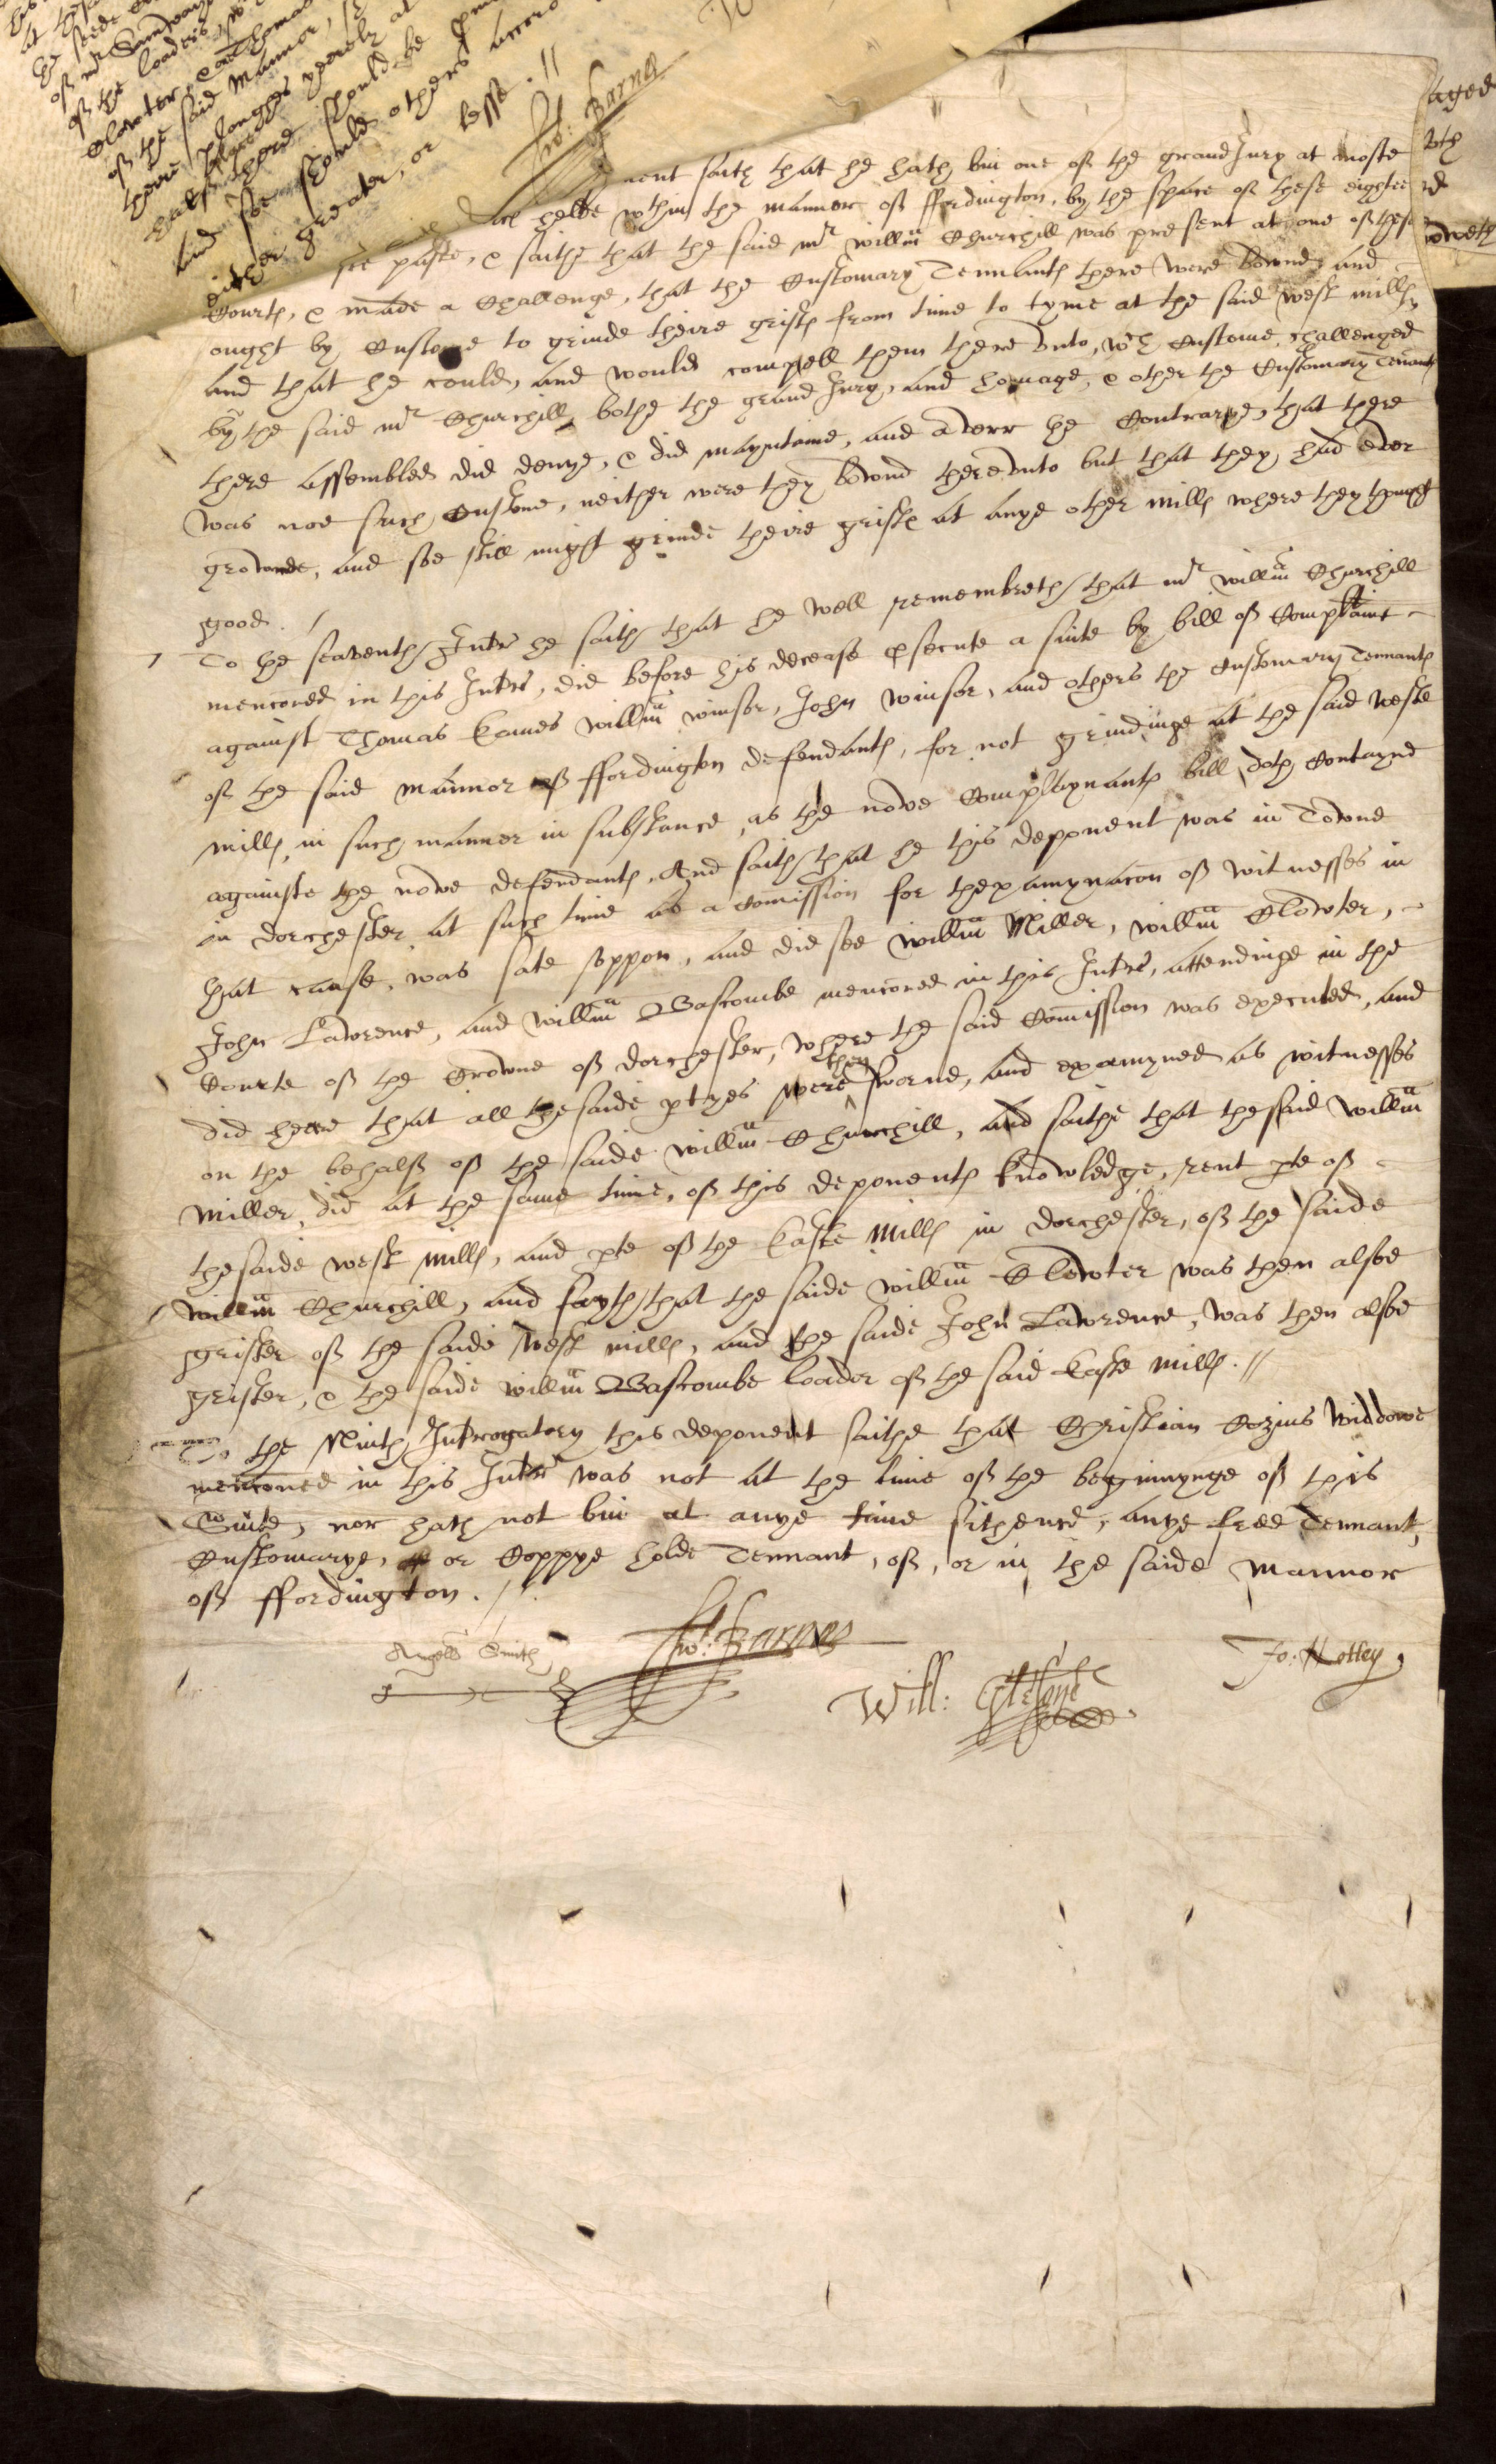 of mr
of the loaders
Clowter, & Thomas
of the said Mannor,
theire ploughes yearely at
halfe there should be
and soe should others
either greater, or lesse . //
Jho: Barnes
aged
oth
nent saith that he hath bin one of the grand Jury at moste
helde wthin the mannor of ffordington, by the space of these eightee
paste, & saithe that the said mr willm Churchill was present at one of these
Courts, & made a Challenge, that the Customary Tennants there were bownd, and
ought by Custome to grinde theire grists from time to tyme at the said west mills,
and that he could, and would compell them there vnto, wch Custome, challenged
by the said mr Churchill, bothe the grand Jury, and homage, & other the Customary Tenants
there assembled did denye, & did mayntaine, and averr he Contrarye, that there
was noe such Custome, neither were they bownd therevnto but that they had ever
grownde, and soe still might grinde theire grists at anye other mills where they thought
good . /
7 To he seaventh Intr he saith that he well remembreth that mr willm Churchill
menconed in this Intr, did before his decease psecute a suite by bill of Complainte
against Thomas Eames willm winsor, John winsor, and others the Customary Tennants
of the said mannor of ffordington defendants, for not grindinge at the said weste
mills, in such manner in substance, as the nowe Complaynants bill, doth Contayne
againste the nowe defendants, And saith that he this deponent was in Towne
in dorchester at such time as a Comission for thexamynacon of witnesses in
that cause, was sate vppon, and did see willm Miller, willm Clowter,
John Lawrence, and willm Bascombe menconed in this Intr, attendinge in the
Courte of the Crowne of dorchester, where the said Comission was executed, and
did heare that all the saide ptyes were they sworne, and examyned as witnesses
on the behalf of the saide willm Churchill, and saithe that the said willm
Miller, did at the same time, of this deponents knowledge, rent pte of
the saide west mills, and pte of the Easte Mills in dorchester, of the saide
willm Churchill, and sayth that the saide willm Clowter was then alsoe
grister of the saide west mills, and the saide John Lawrence, was then alsoe
grister, & the saide willm Bascombe loader of the said Easte mills . //
To the Ninth Introgatory this deponent saithe that Christian Cozins Widdowe
menconed in this Intr was not at the time of the beginnynge of this
Suite, nor hath not bin at anye time sithence, anye free Tennant,
Customarye, or Coppye holde Tennant, of, or in the saide mannor
of ffordington . /
Angell Smith
Jho: Barnes
Will:
Jo: Hotley